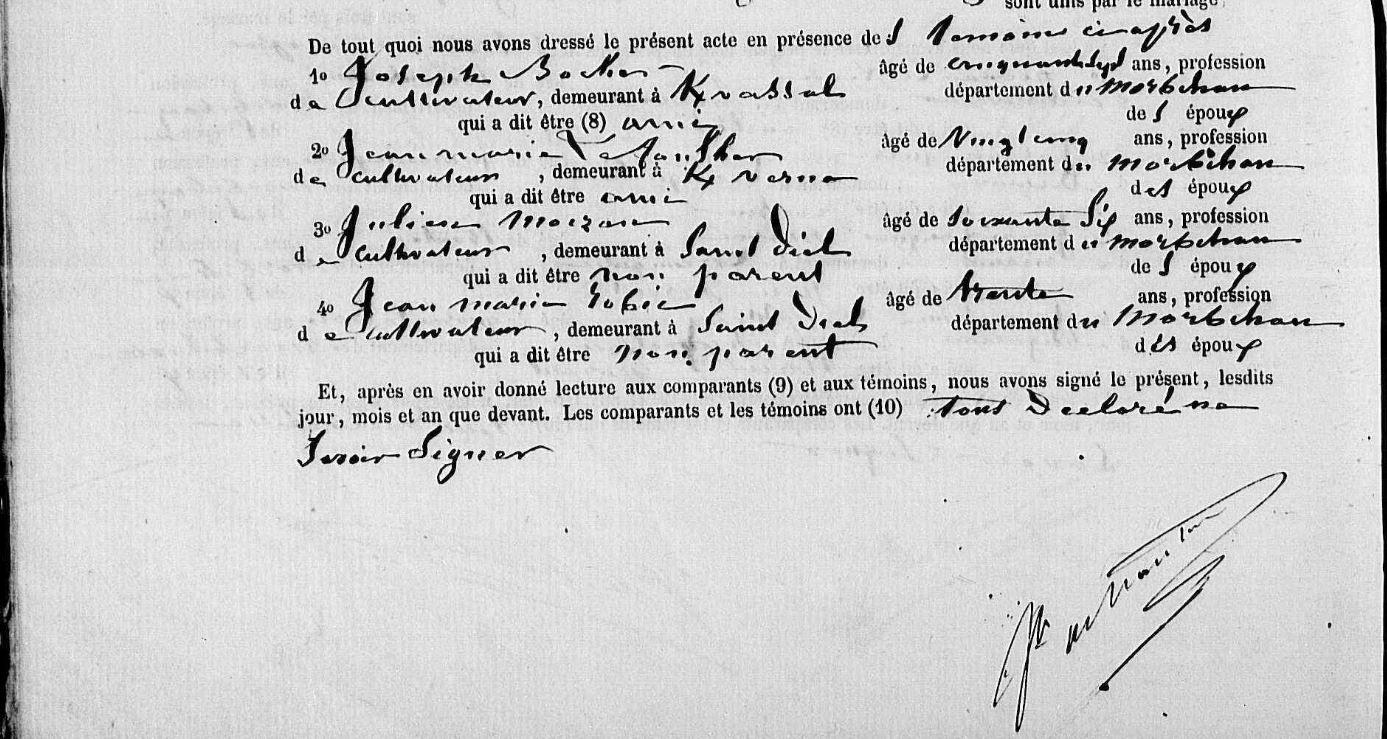 sont unis par le mariage.
De tout quoi nous avons dressé le présent acte en présence des Temoins ci après
1o Joseph Bocher âgé de cinquante sept ans, profession
de Cultivateur, demeurant à département du Morbihan
qui a dit être (8) ami des époux
2o Jean marie âgé de Vingt cinq ans, profession
de cultivateur, demeurant à département du morbihan
qui a dit être ami des époux
3o Julien moizan âgé de Soixante Six ans, profession
de cultivateur, demeurant à Saint Dial département du morbihan
qui a dit être non parent des époux
4o Jean marie âgé de trente ans, profession
de Cultivateur, demeurant à Saint Dial département du Morbihan
qui a dit être non parent des époux
Et, après en avoir donné lecture aux comparants (9) et aux témoins, nous avons signé le présent, lesdits
jour, mois et an que devant. Les comparants et les témoins ont (10) tous Declaré ne
Savoir Signer